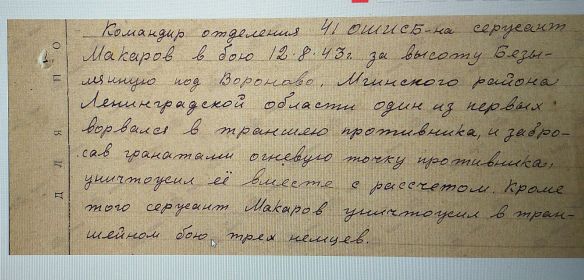 Командир отделения 41 ОШИСБ-на сержант
Макаров в бою 12.8.43г. за высоту Безы-
мянную под Вороново, Мгинского района
Ленинградской области один из первых
ворвался в траншею противника, и забро-
сав гранатами огневую точку противника,
уничтожил её вместе с рассчетом. Кроме
того сержант Макаров уничтожил в тран-
шейном бою трех немцев.
Д Л Я П О